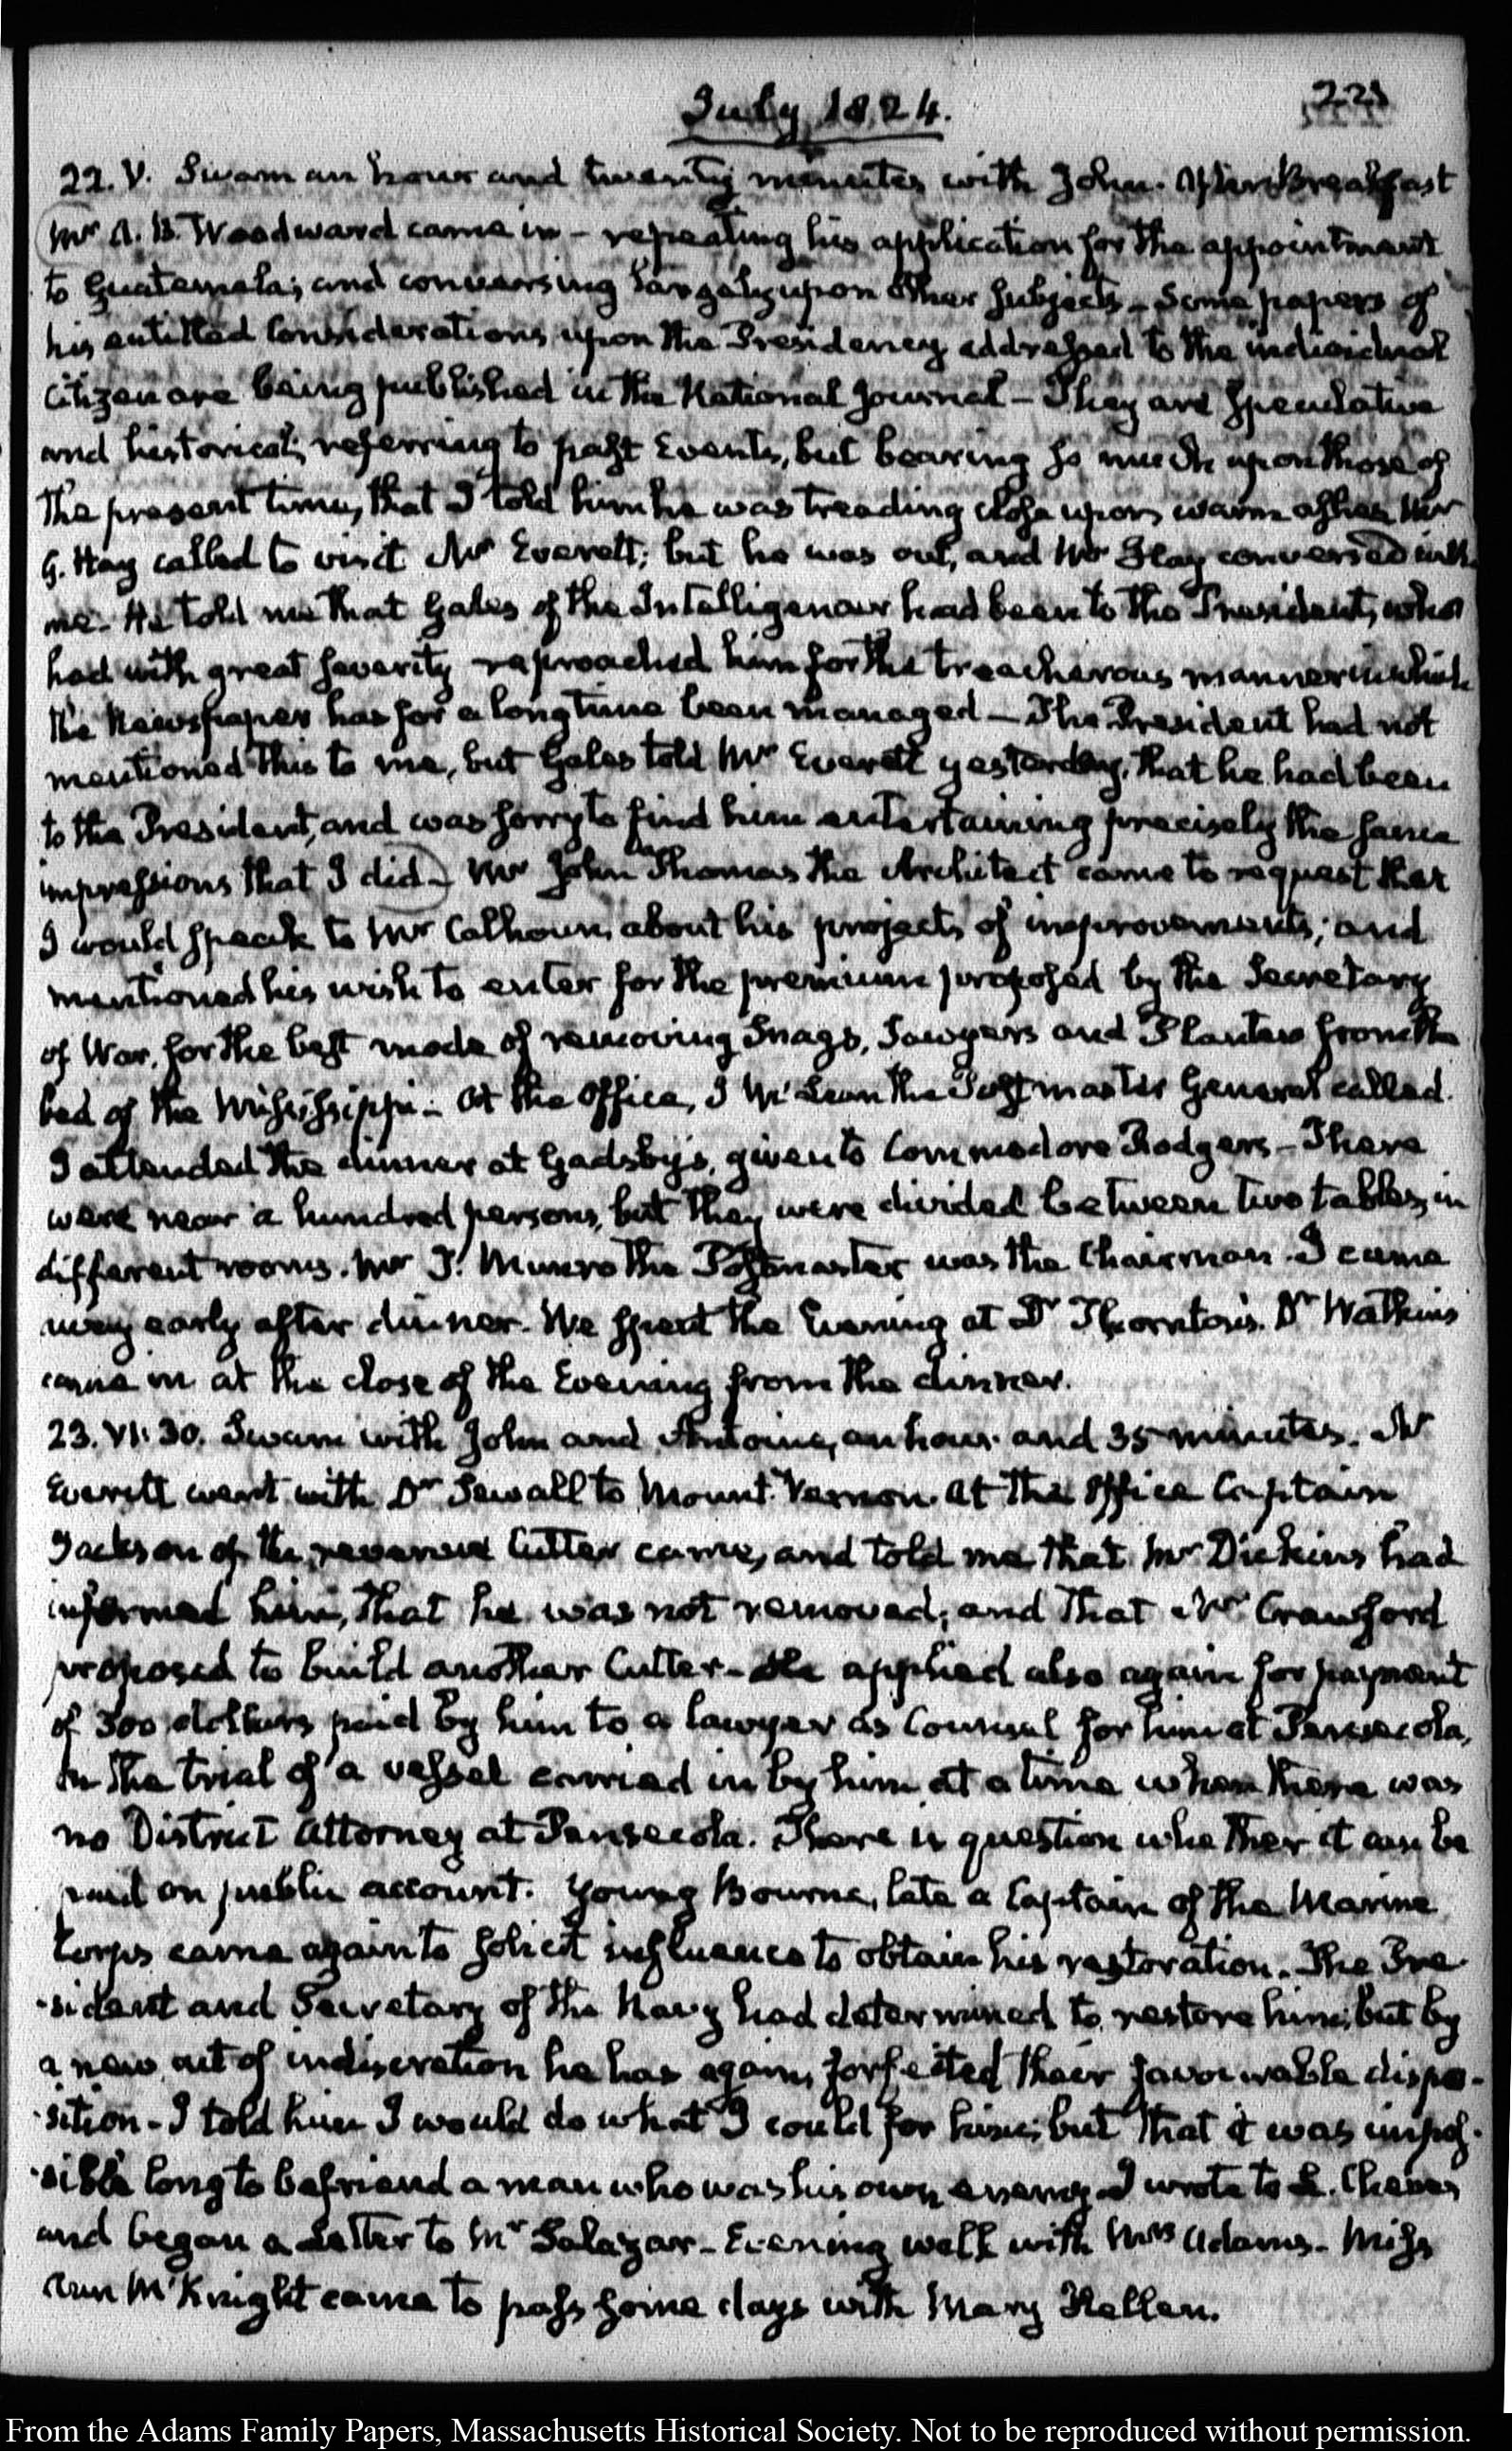 July 1824.
223
22. V. Swam an hour and twenty minutes with John. After Breakfast
Mr A. B. Woodward came in – repeating his application for the appointment
to Guatemala; and conversing largely upon other subjects – Some papers of
his entitled Considerations upon the Presidency addressed to the individual
Citizen are being published in the National Journal – They are speculative
and historical; referring to past Events, but bearing so much upon those of
the present time, that I told him he was treading close upon warm ashes. Mr
G. Hay called to visit Mr Everett; but he was out, and Mr Hay conversed with
me. He told me that Gales of the Intelligencer had been to the President, who
had with great severity reproached him for the treacherous manner in which
the Newspaper has for a long time been managed – The President had not
mentioned this to me, but Gales told Mr Everett yesterday, that he had been
to the President, and was sorry to find him entertaining precisely the same
impressions that I did – Mr John Thomas the Architect came to request that
I would speak to Mr Calhoun, about his projects of improvements; and
mentioned his wish to enter for the premium proposed by the Secretary
of War, for the best mode of removing Snags, Sawyers and Planters from the
bed of the Missisippi – At the Office, J McLean the Postmaster General called.
I attended the dinner at Gadsby's, given to Commodore Rodgers – There
were near a hundred persons, but they were divided between two tables, in
different rooms. Mr T. Munro the Postmaster was the Chairman. I came
away early after dinner. We spent the Evening at Dr Thornton's. Dr Watkins
came in at the close of the Evening from the dinner.
23. VI: 30. Swam with John and Antoine, an hour and 35 minutes. Mr
Everett went with Dr Sewall to Mount Vernon. At the Office Captain
Jackson of the revenue Cutter came, and told me that Mr Dickins had
informed him, that he was not removed; and that Mr Crawford
proposed to build another Cutter – He applied also again for payment
of 300 dollars paid by him to a lawyer as Counsel for him at Pensacola,
in the trial of a vessel carried in by him, at a time when there was
no District Attorney at Pensacola. There is question whether it can be
paid on public account. Young Bourne, late a Captain of the Marine
Corps came again to solicit influence to obtain his restoration. The Pre-
-sident and Secretary of the Navy had determined to restore him; but by
a new act of indiscretion he has again forfeited their favourable dispo-
-sition – I told him I would do what I could for him; but that it was impos-
-sible long to befriend a man who was his own enemy. I wrote to L. Cheves
and began a Letter to Mr Salazar – Evening walk with Mrs Adams – Miss
Ann McKnight came to pass some days with Mary Hellen.
From the Adams Family Papers, Massachusetts Historical Society. Not to be reproduced without permission.